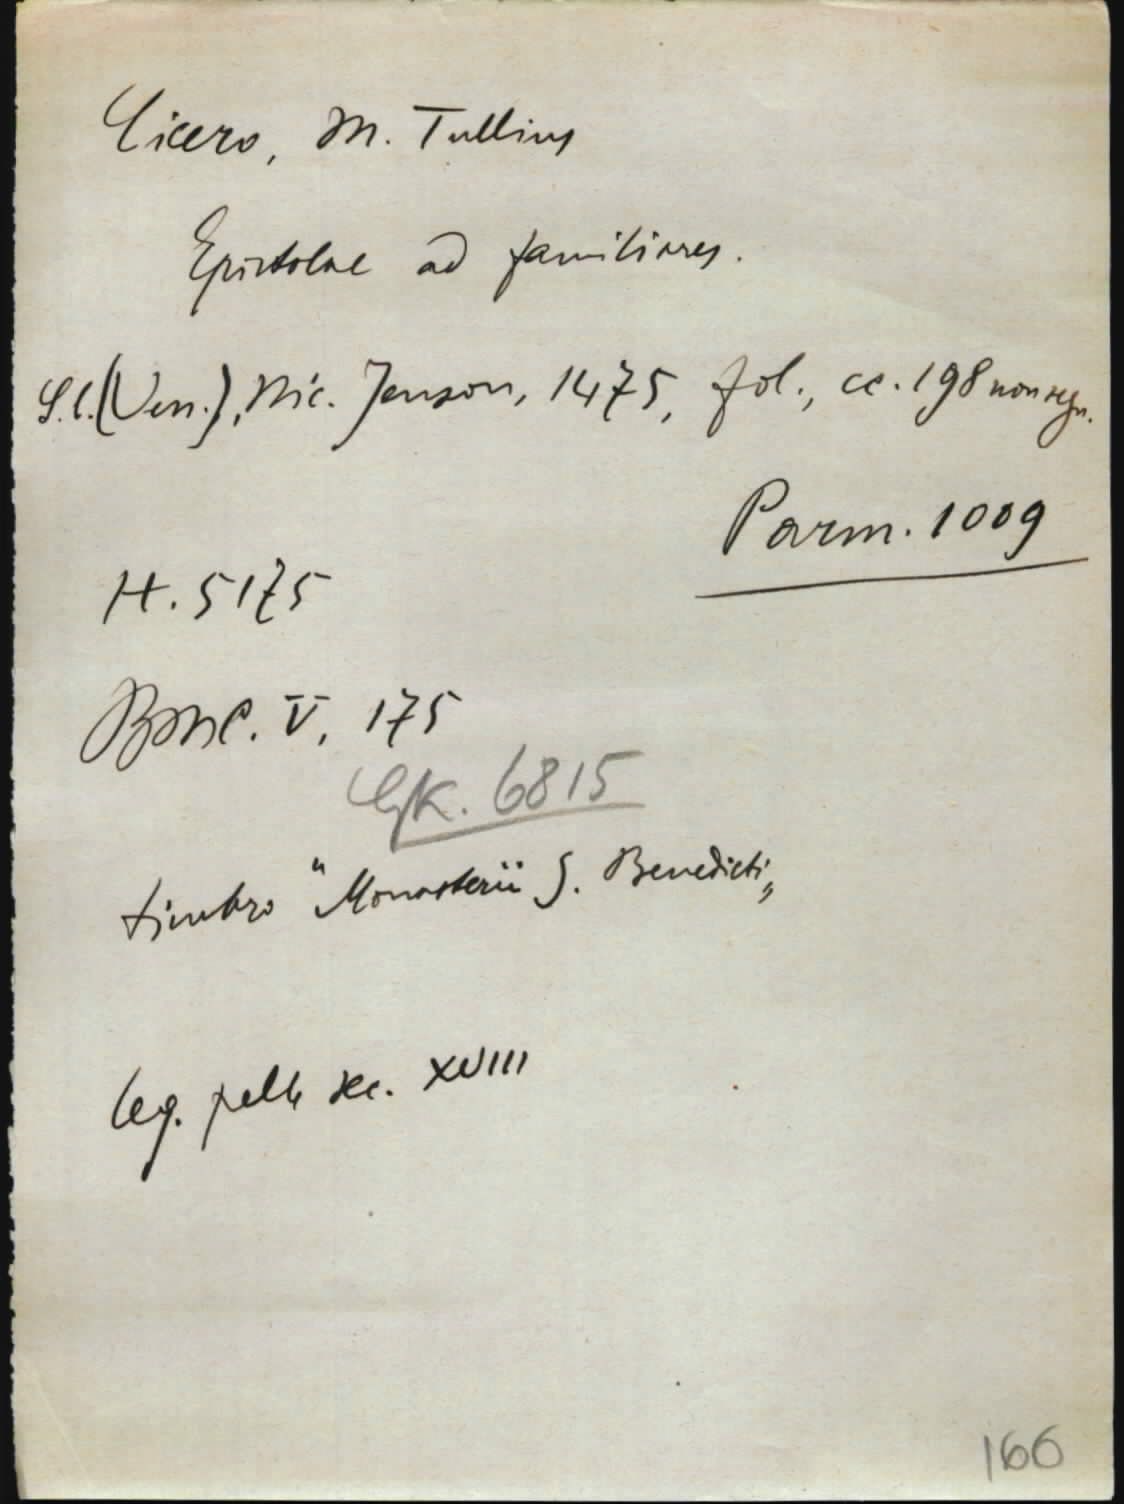 Cicero, M. Tullius
Epistolae ad familiares.
S.l. (Ven.), Nic. Jenson, 1475, fol., cc. 198 non segn.
Parm. 1009
H. 5175
BMC. V, 175
GK. 6815
timbro "Monasterii S. Benedicti„
leg. pelle sec. XVIII
166